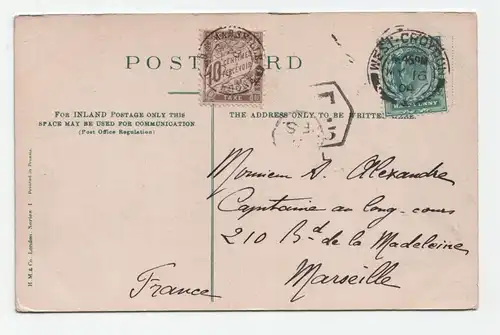 POST CARD
FOR INLAND POSTAGE ONLY THIS
SPACE MAY BE USED FOR COMMUNICATION
(Post Office Regulation)
THE ADDRESS ONLY TO BE WRITTEN HERE.
10
CENTIMES
À PERCEVOIR
TAXE
WEST CROYDON
Monsieur A. Alexandre
Capitaine au long-cours
210 Bd de la Madeleine
Marseille
France
H. M. & Co. London. Series 1